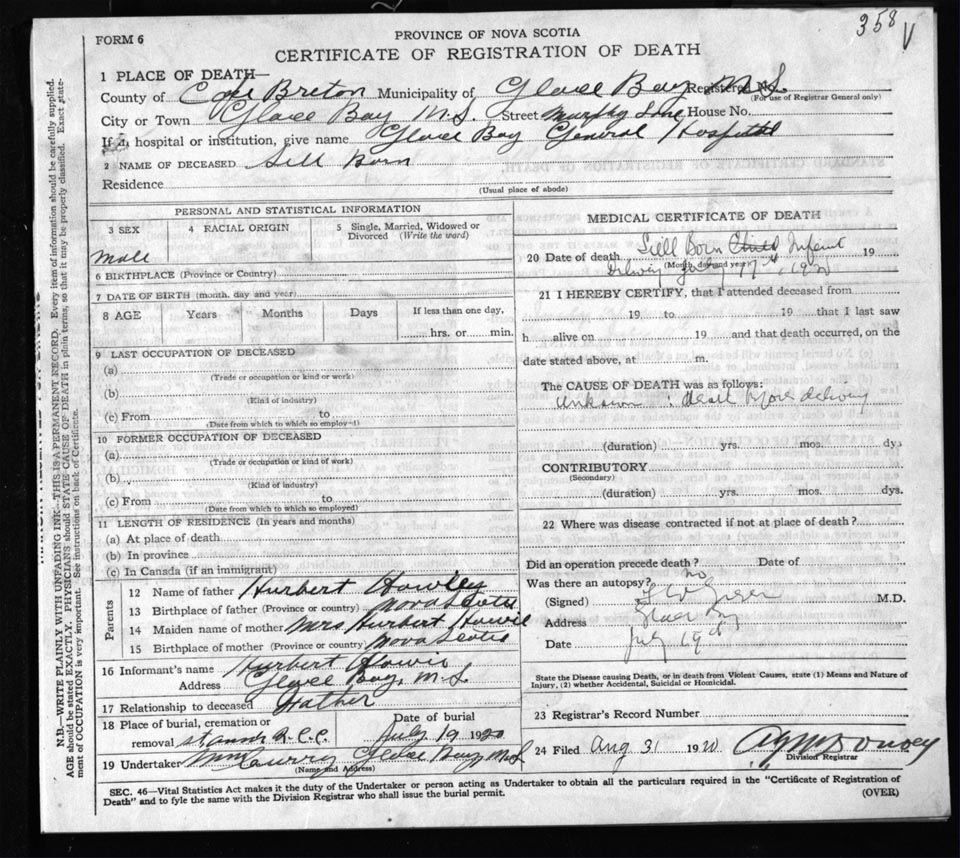 358
V
FORM 6
PROVINCE OF NOVA SCOTIA
CERTIFICATE OF REGISTRATION OF DEATH
1 PLACE OF DEATH—
County of Cape Breton Municipality of Glace Bay N.S. Registered No.
(For use of Registrar General only)
City or Town Glace Bay N.S. Street Murphy Lane House No.
If in hospital or institution, give name Glace Bay General Hospital
2 NAME OF DECEASED Still Born
Residence
(Usual place of abode)
PERSONAL AND STATISTICAL INFORMATION
3 SEX 4 RACIAL ORIGIN 5 Single, Married, Widowed or Divorced (Write the word)
Male
6 BIRTHPLACE (Province or Country)
7 DATE OF BIRTH (month, day and year)
8 AGE Years Months Days If less than one day,
hrs. or min.
9 LAST OCCUPATION OF DECEASED
(a)
(Trade or occupation or kind of work)
(b)
(Kind of industry)
(c) From to
(Date from which to which so employed)
10 FORMER OCCUPATION OF DECEASED
(a)
(Trade or occupation or kind of work)
(b)
(Kind of industry)
(c) From to
(Date from which to which so employed)
11 LENGTH OF RESIDENCE (In years and months)
(a) At place of death
(b) In province
(c) In Canada (if an immigrant)
Parents
12 Name of father Hurbert Howley
13 Birthplace of father (Province or country) Nova Scotia
14 Maiden name of mother Mrs Hurbert Howie
15 Birthplace of mother (Province or country) Nova Scotia
16 Informant's name Hurbert Howie
Address Glace Bay, N.S.
17 Relationship to deceased Father
18 Place of burial, cremation or removal
Date of burial
July 19 1920
19 Undertaker Curry Glace Bay N.S
(Name and Address)
MEDICAL CERTIFICATE OF DEATH
20 Date of death Still Born Child Infant 19
(Month, day and year)
July 17th, 1920
21 I HEREBY CERTIFY, that I attended deceased from
19 to 19 that I last saw
h alive on 19 and that death occurred, on the
date stated above, at m.
The CAUSE OF DEATH was as follows:
Unknown : death before delivery
(duration) yrs. mos. dys
CONTRIBUTORY
(Secondary)
(duration) yrs. mos. dys.
22 Where was disease contracted if not at place of death?
Did an operation precede death? Date of
Was there an autopsy? no
(Signed) M.D.
Address Glace Bay
Date July 19th
State the Disease causing Death, or in death from Violent Causes, state (1) Means and Nature of
Injury, (2) whether Accidental, Suicidal or Homicidal.
23 Registrar's Record Number
24 Filed Aug 31 1920
Division Registrar
SEC. 46—Vital Statistics Act makes it the duty of the Undertaker or person acting as Undertaker to obtain all the particulars required in the "Certificate of Registration of
Death" and to fyle the same with the Division Registrar who shall issue the burial permit. (OVER)
N.B.—WRITE PLAINLY WITH UNFADING INK—THIS IS A PERMANENT RECORD. Every item of information should be carefully supplied.
AGE should be stated EXACTLY. PHYSICIANS should STATE CAUSE OF DEATH in plain terms, so that it may be properly classified. Exact state-
ment of OCCUPATION is very important. See instructions on back of Certificate.